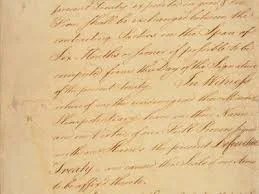 present Treaty
shall be exchanged between the
contracting Parties in the Space of
Six Months or sooner if possible to be
computed from the Day of the Signature
of the present Treaty. In Witness
whereof we the
have in their Name
and in Virtue of our Full Powers
the present Definitive
Treaty, and caused the Seals of our Arms
to be affixed thereto.